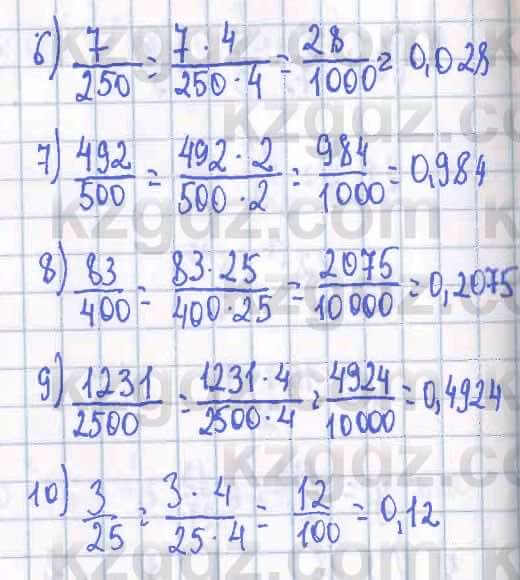 6) 7/250 = 7·4/250·4 = 28/1000 = 0,028
7) 492/500 = 492·2/500·2 = 984/1000 = 0,984
8) 83/400 = 83·25/400·25 = 2075/10000 = 0,2075
9) 1231/2500 = 1231·4/2500·4 = 4924/10000 = 0,4924
10) 3/25 = 3·4/25·4 = 12/100 = 0,12
kzgdz.com